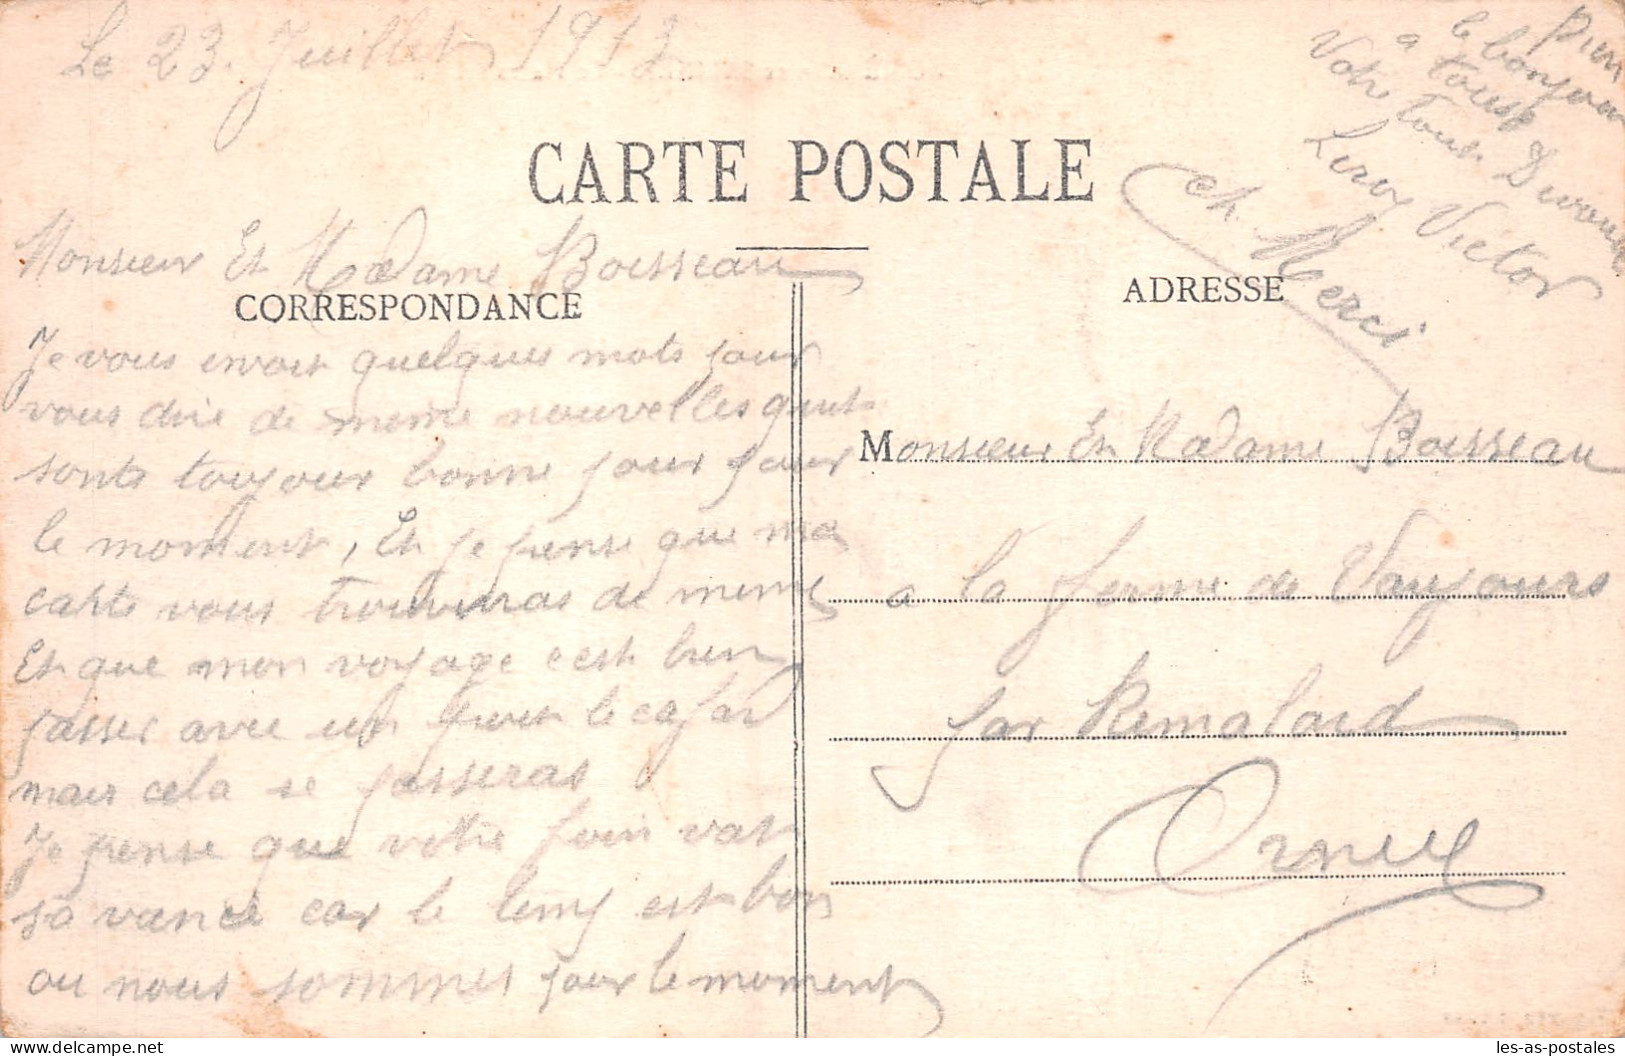 Le 23. Juillet 1913
CARTE POSTALE
Monsieur Et Madame Boisseau
CORRESPONDANCE
Je vous envoit quelques mots pour
vous dire de meme nouvelles quit
sonts toujour bonne pour
le moment, Et je pense que ma
carte vous trouveras de meme
Et que mon voyage cest bien
passer avec un le cafar
mais cela se passeras
Je pense que votre foin vat
sa vance car le temp est bon
ou nous sommes pour le moment
Bien
le bonjour
a tousp
Votre tout Devoué
Leroy Victor
et Merci
ADRESSE
Monsieur Et Madame Boisseau
a la ferme de Vaujours
par Remalard
Orne
les-as-postales